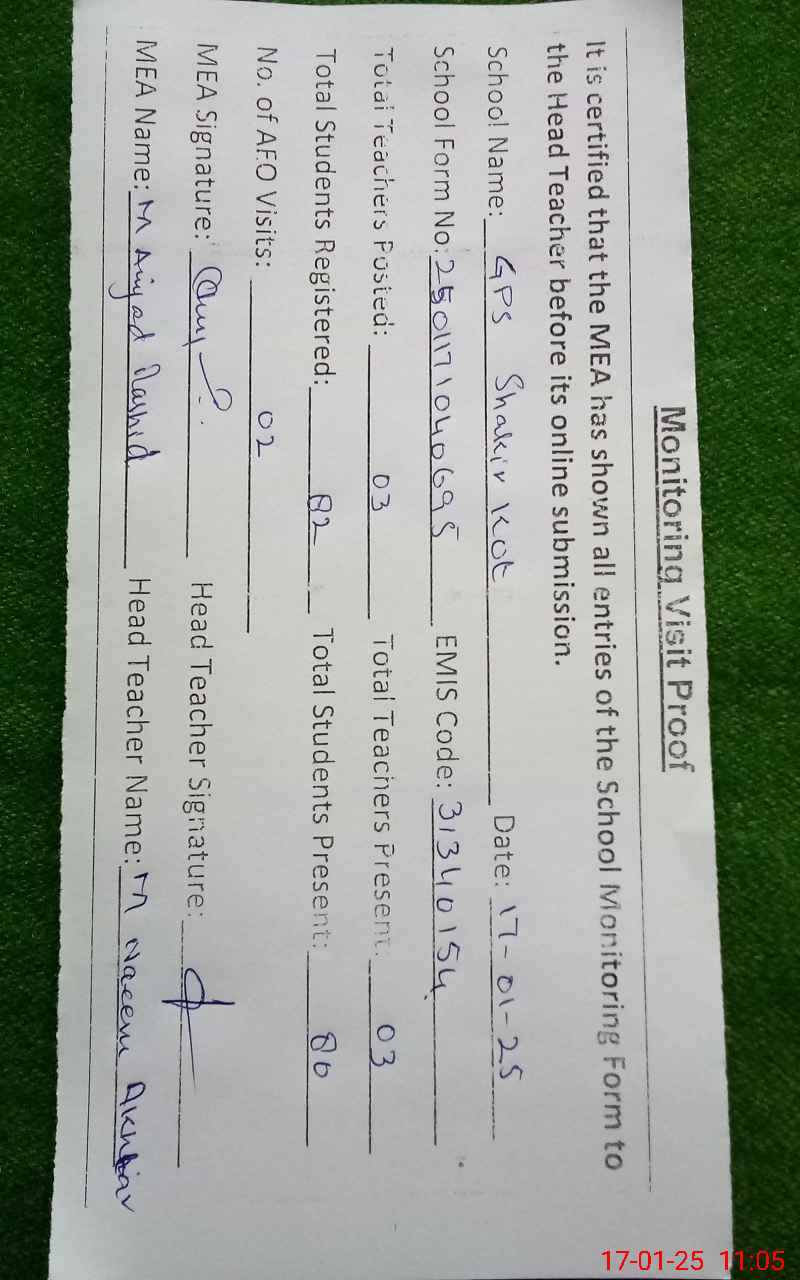 Monitoring Visit Proof
It is certified that the MEA has shown all entries of the School Monitoring Form to
the Head Teacher before its online submission.
School Name: GPS Shakir Kot Date: 17-01-25
School Form No: 2501171040695 EMIS Code: 31340154
Total Teachers Posted: 03 Total Teachers Present: 03
Total Students Registered: 82 Total Students Present: 80
No. of AEO Visits: 02
MEA Signature: Head Teacher Signature:
MEA Name: M Amjad Rashid Head Teacher Name: M Naeem Akhtar
17-01-25 11:05